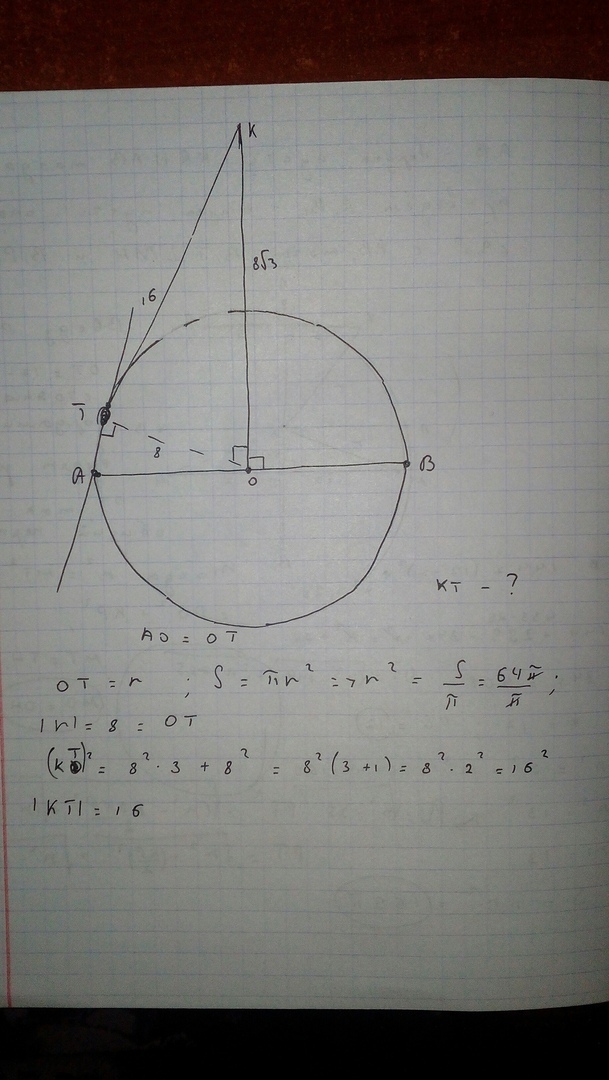 K
8√3
16
T
8
A
O
B
KT - ?
AO = OT
OT = r ; S = πr² => r² = S/π = 64π/π ;
|r| = 8 = OT
(KT)² = 8² · 3 + 8² = 8² (3 + 1) = 8² · 2² = 16²
|KT| = 16